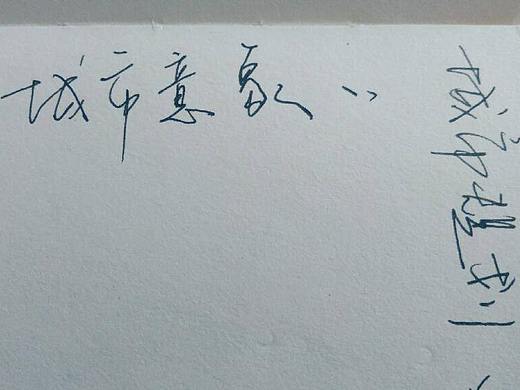 城市意象：
城市规划